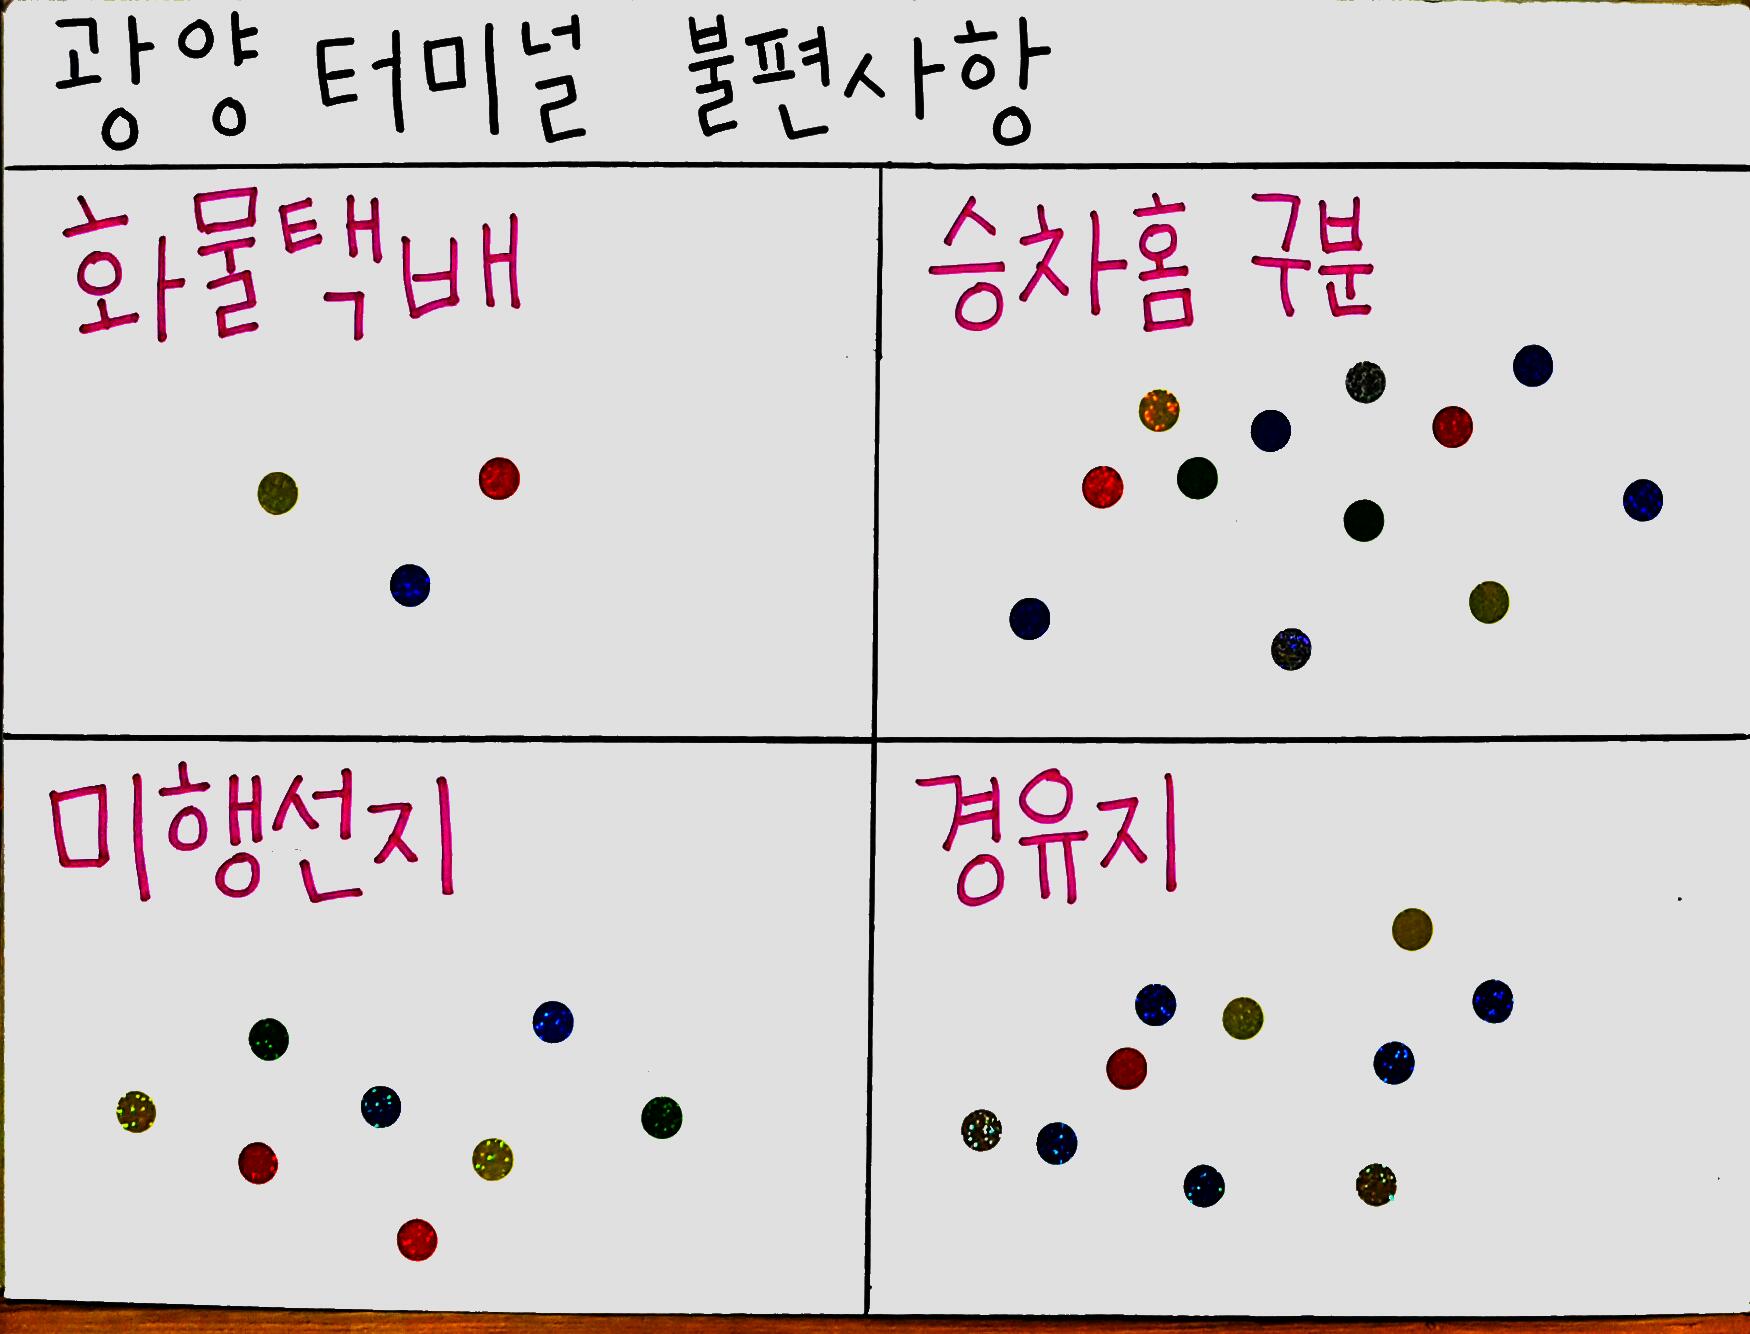 광양 터미널 불편사항
화물택배
승차홈 구분
미행선지
경유지